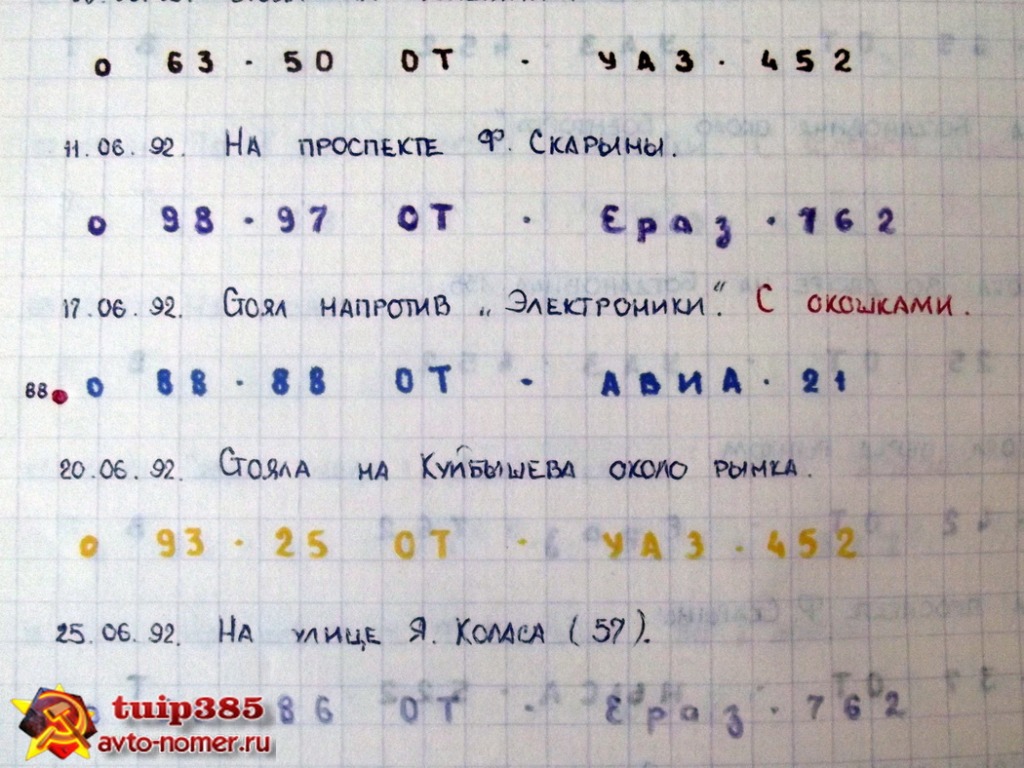 о 63 · 50 ОТ · УАЗ · 452
11.06.92. На проспекте Ф. Скарыны.
о 98 · 97 ОТ · Ераз · 762
17.06.92. Стоял напротив „Электроники". С окошками.
88. о 88 · 88 ОТ - АВИА · 21
20.06.92. Стояла на Куйбышева около рынка.
о 93 · 25 ОТ · УАЗ · 452
25.06.92. На улице Я. Коласа (57).
86 ОТ · Ераз · 762
tuip385
avto-nomer.ru